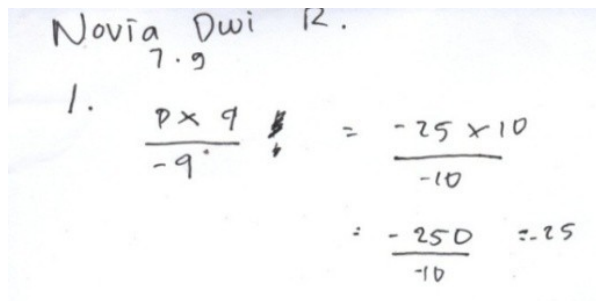 Novia Dwi R.
7.9
1. p x q / -q = -25 x 10 / -10
= -250 / -10 = -25